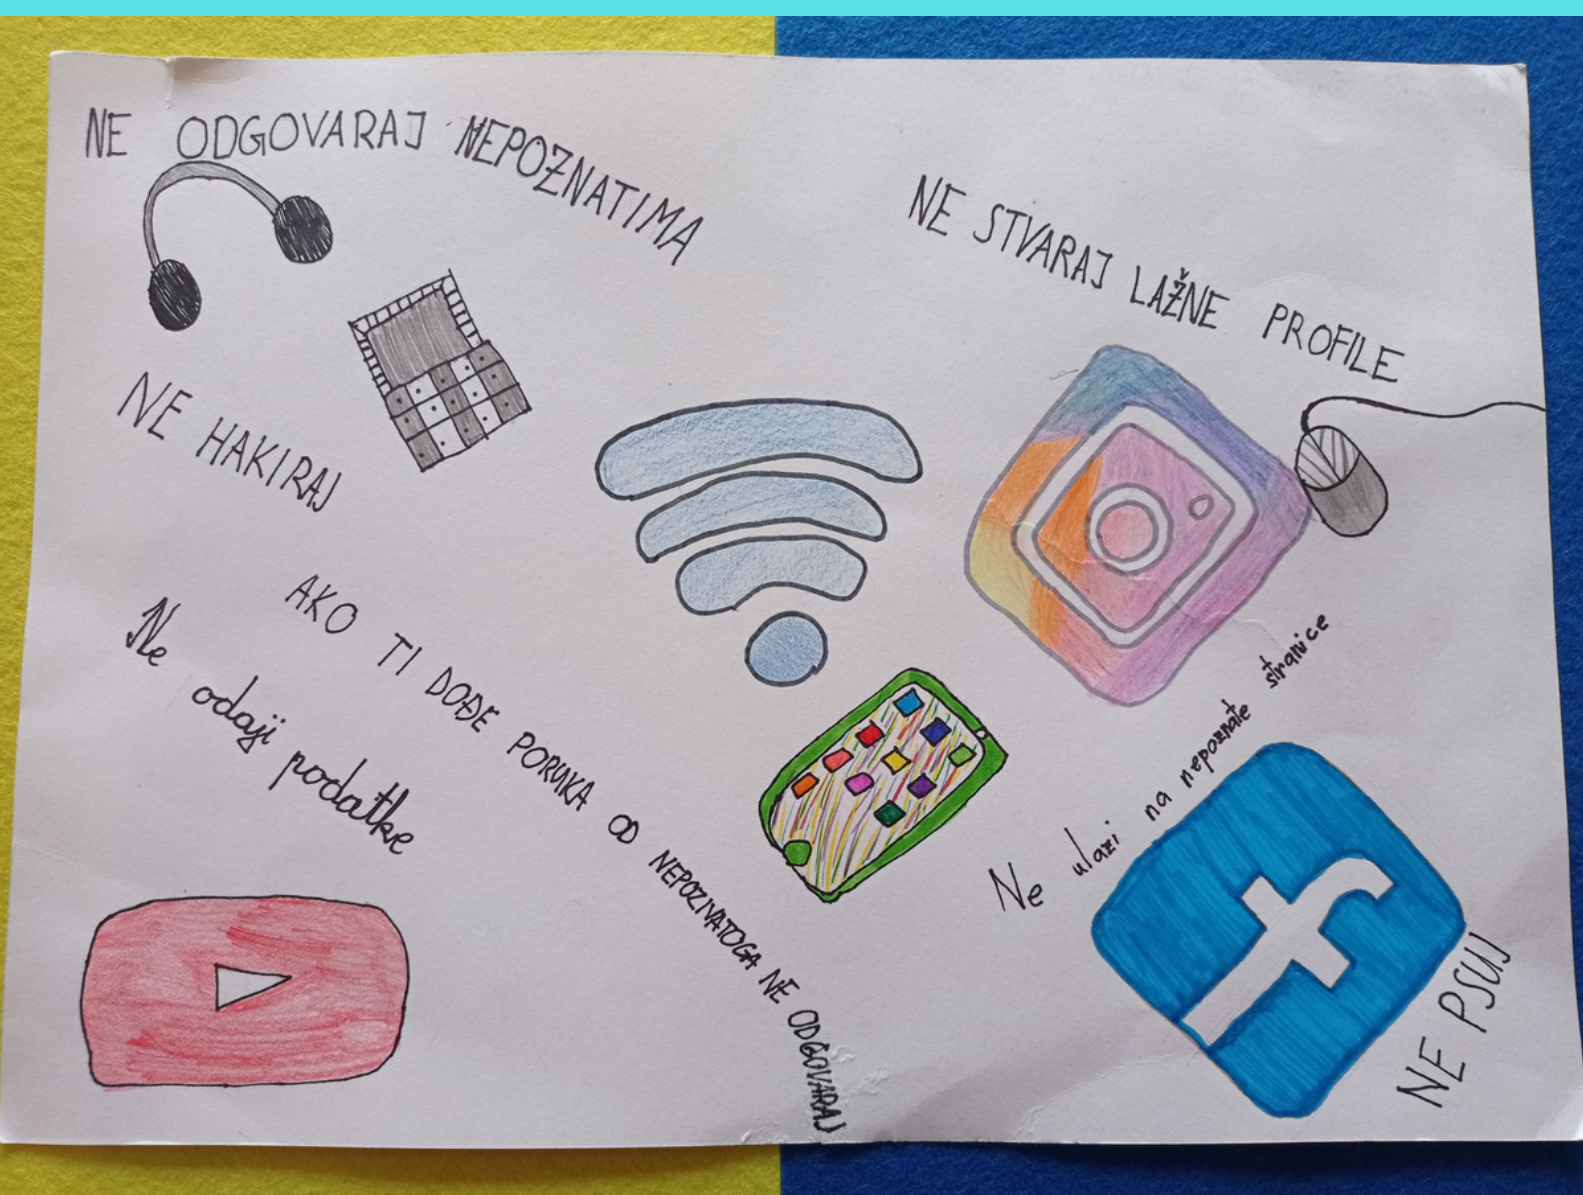 NE ODGOVARAJ NEPOZNATIMA
NE STVARAJ LAŽNE PROFILE
NE HAKIRAJ
AKO TI DOĐE PORUKA OD NEPOZNATOGA NE ODGOVARAJ
Ne odaji podatke
Ne ulazi na nepoznate stranice
f
NE PSUJ